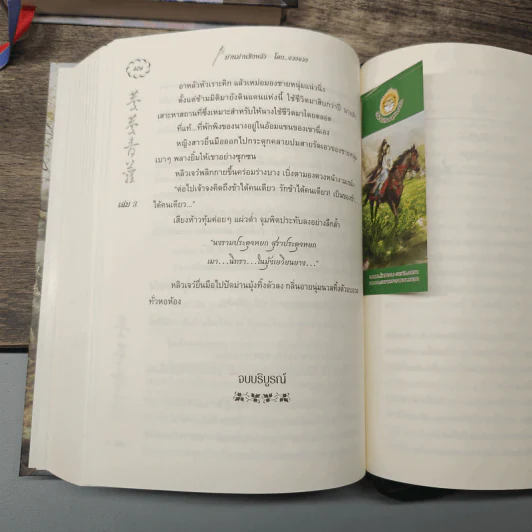 อาหลัวหัวเราะคิก แล้วเหม่อมองชายหนุ่มแน่วนิ่ง
ตั้งแต่ข้ามมิติมายังดินแดนแห่งนี้ ใช้ชีวิตมาสิบกว่าปี
เสาะหาสถานที่ซึ่งเหมาะสำหรับให้นางใช้ชีวิตมาโดยตลอด
ที่แท้...ที่พักพิงของนางอยู่ในอ้อมแขนของเขานี่เอง
หญิงสาวยื่นมือออกไปกระตุกคลายปมสายรัดเอวของชายหนุ่ม
เบาๆ พลางยิ้มให้เขาอย่างซุกซน
หลิวเจวี๋ยพลิกกายขึ้นคร่อมร่างบาง เบิ่งตามองดวงหน้างาม
"ต่อไปเจ้าจงคิดถึงข้าได้คนเดียว รักข้าได้คนเดียว! เป็นของข้า
ได้คนเดียว..."
เสียงห้าวทุ้มค่อยๆ แผ่วต่ำ จุมพิตประทับลงอย่างลึกล้ำ
"นงรามประดุจหยก สุราประดุจหยก
เมา...นิทรา...
หลิวเจวี๋ยยื่นมือไปปัดม่านมุ้งทิ้งตัวลง กลิ่นอายนุ่มนวล
ทั่วทอห้อง
จบบริบูรณ์
蔓蔓青蘿
เล่ม 3